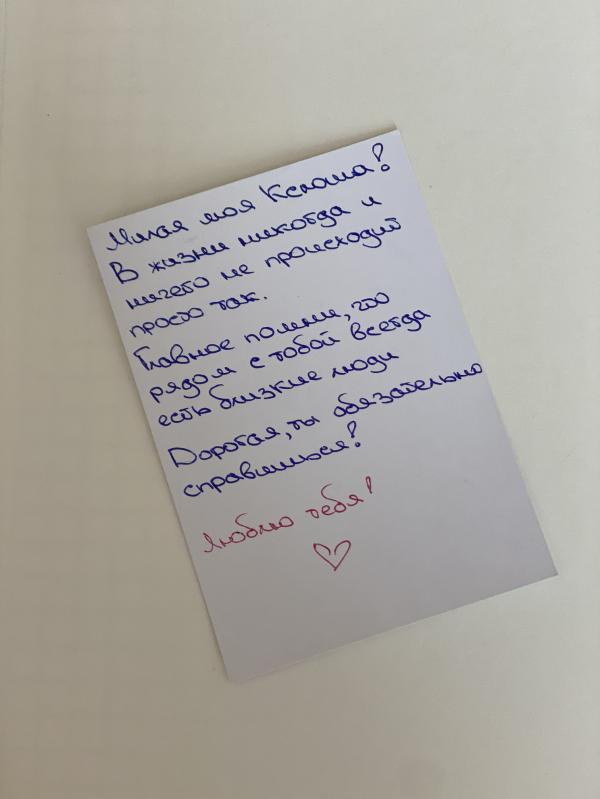 Милая моя Ксюша!
В жизни никогда и
ничего не происходит
просто так.
Главное помни, что
рядом с тобой всегда
есть близкие люди
Дорогая, ты обязательно
справишься!
Люблю тебя!